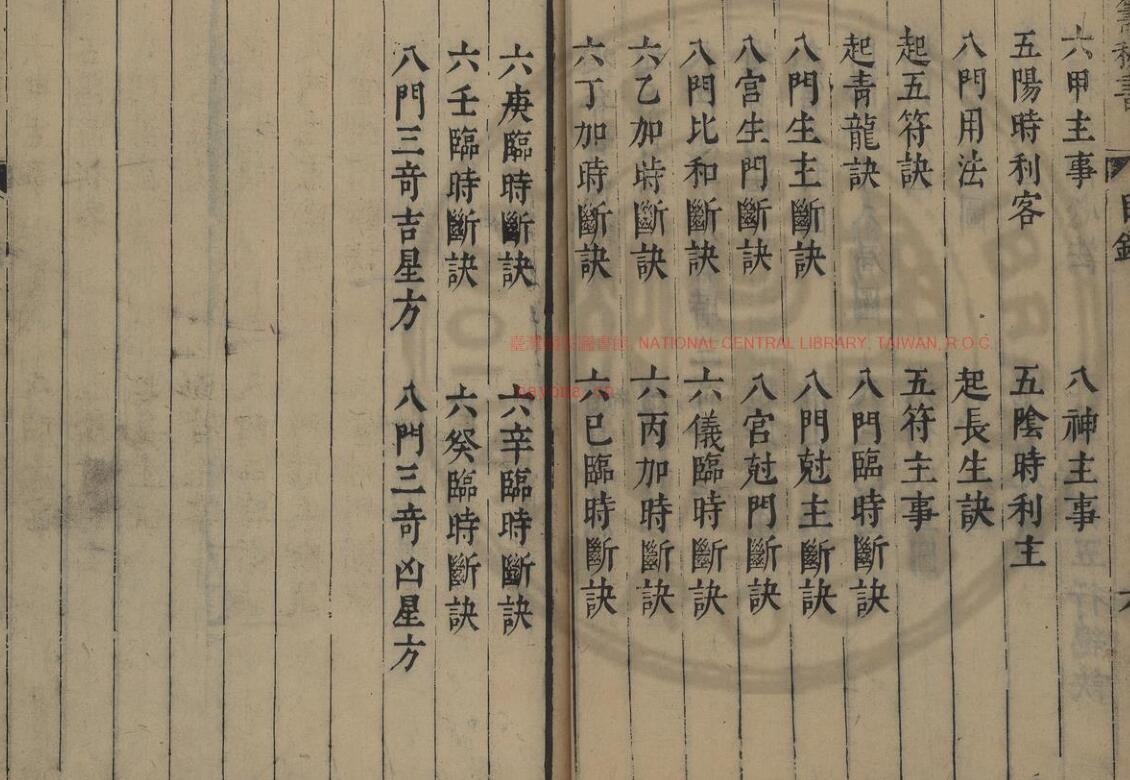 六甲主事 八神主事
五陽時利客 五陰時利主
八門用法 起長生訣
起五符訣 五符主事
起青龍訣 八門臨時斷訣
八門生主斷訣 八門尅主斷訣
八宮生門斷訣 八宮尅門斷訣
八門比和斷訣 六儀臨時斷訣
六乙加時斷訣 六丙加時斷訣
六丁加時斷訣 六巳臨時斷訣
六庚臨時斷訣 六辛臨時斷訣
六壬臨時斷訣 六癸臨時斷訣
八門三奇吉星方 八門三奇凶星方
目錄
NATIONAL CENTRAL LIBRARY, TAIWAN, R.O.C.